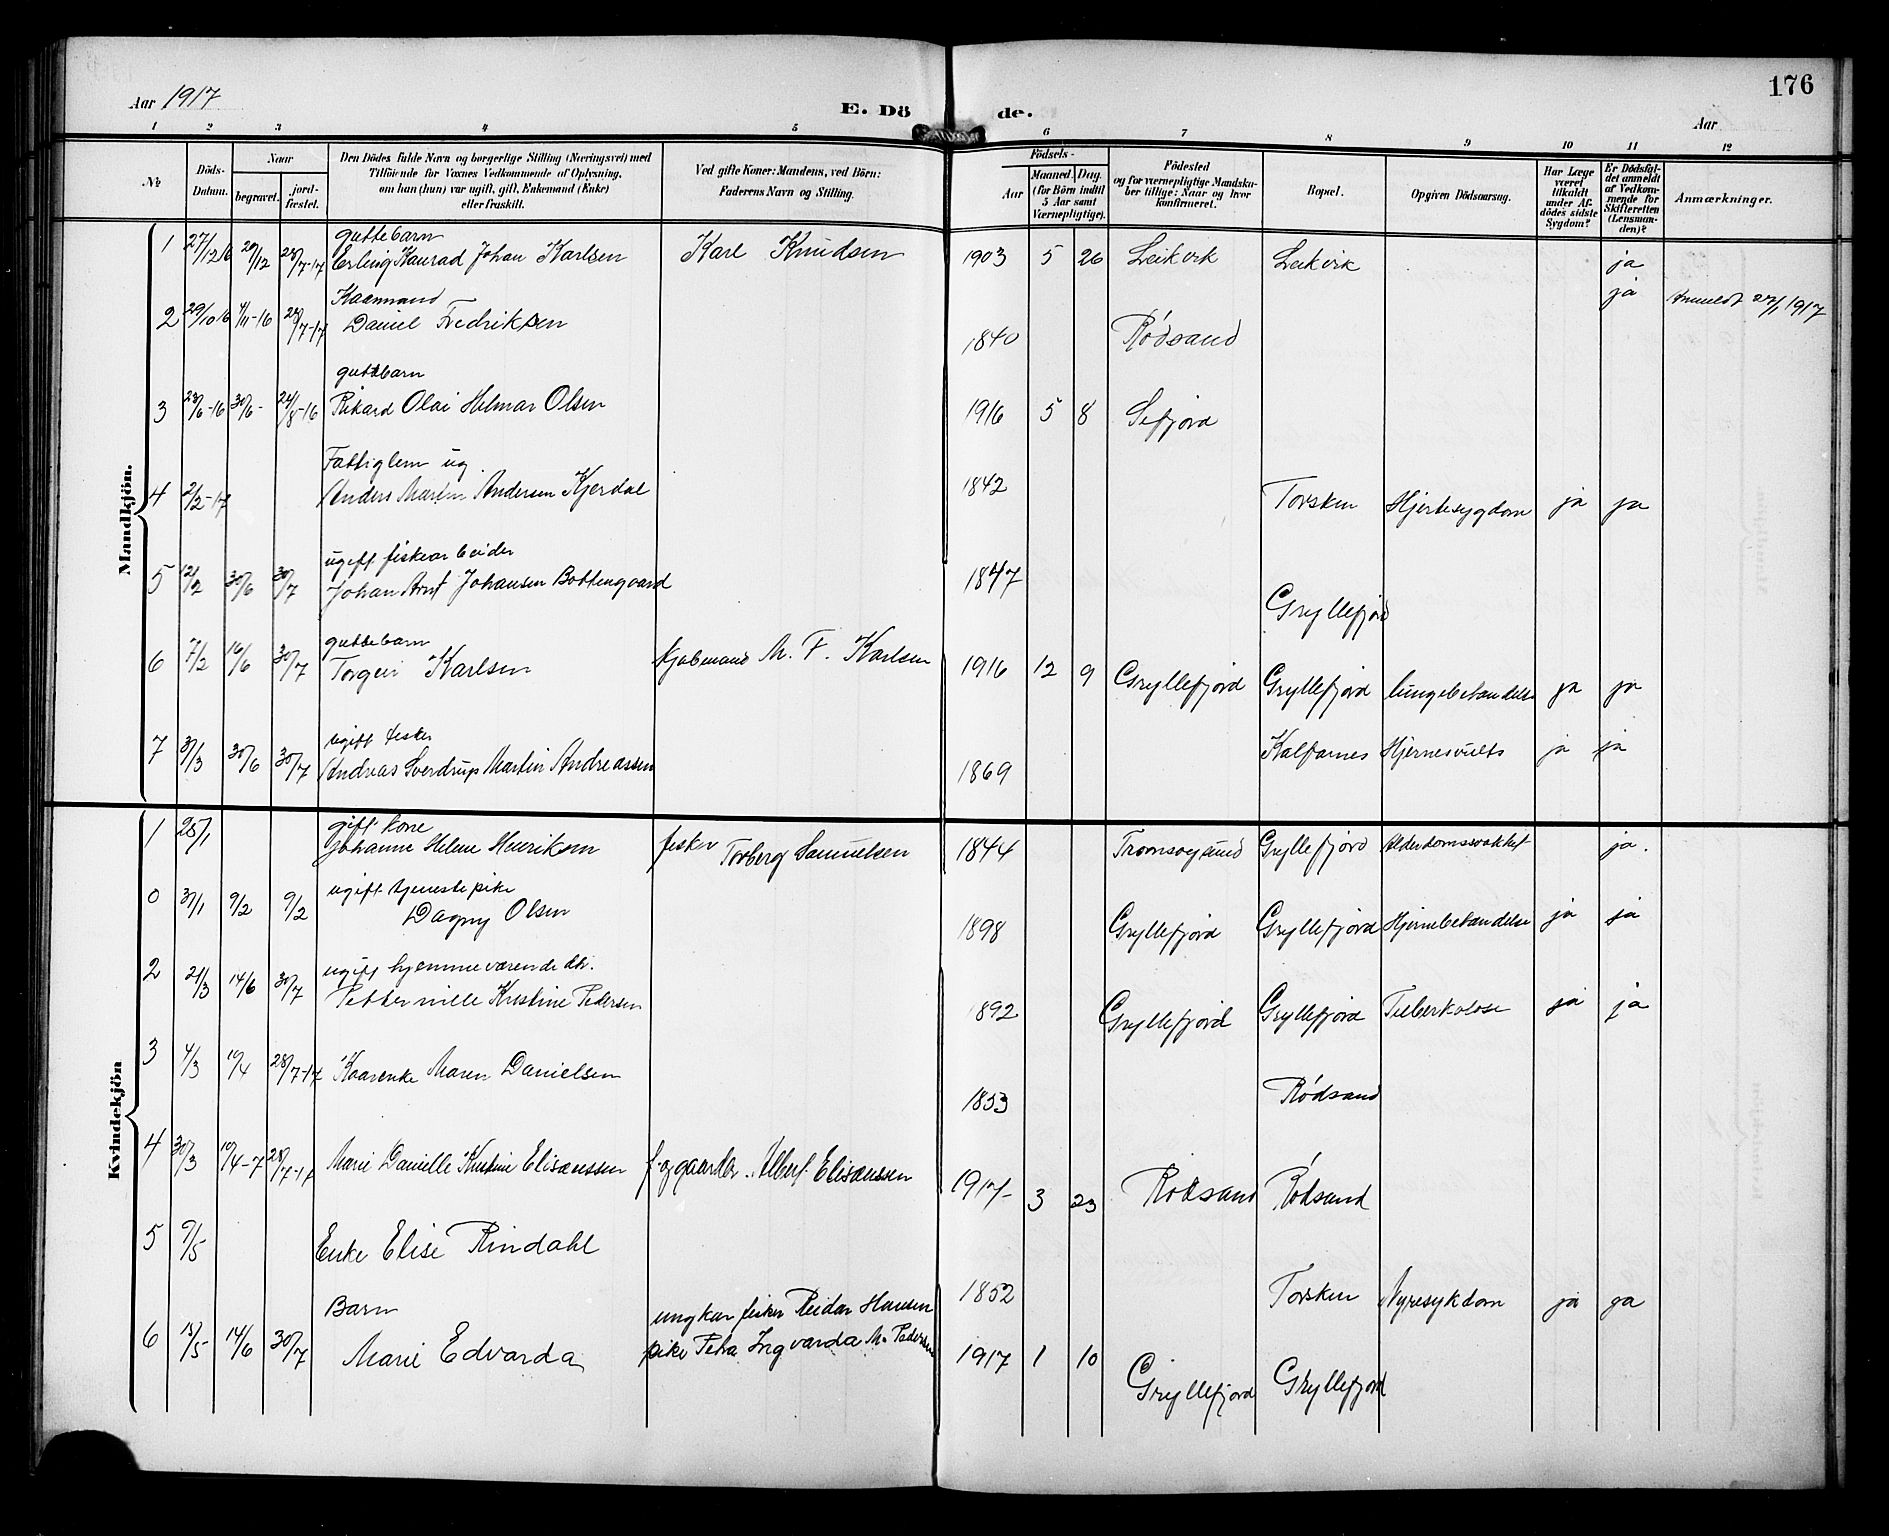 176
Aar 1917
E. Dö
de.
Aar
1 2 3 4 5 6 7 8 9 10 11 12
No.
Döds-Datum.
Naar
begravet.
jord-fæstet.
Den Dödes fulde Navn og borgerlige Stilling (Næringsvei) med
Tilföiende for Voxnes Vedkommende af Oplysning,
om han (hun) var ugift, gift, Enkemand (Enke)
eller fraskilt.
Ved gifte Koner: Mandens, ved Börn:
Faderens Navn og Stilling.
Födsels-
Aar
Maaned. Dag.
(for Börn indtil
5 Aar samt
Værnepligtige).
Födested
og for værnepligtige Mandska-
ber tillige: Naar og hvor
konfirmeret.
Bopæl.
Opgiven Dödsaarsag.
Har Læge
været
tilkaldt
under Af-
dödes sidste
Sygdom?
Er Dödsfal-
det anmeldt
af Vedkom-
mende for
Skifteretten
(Lensman-
den)?
Anmærkninger.
Mandkjön.
guttebarn
1 27/12 16 29/12 28/7-17 Erling Konrad Johan Karlsen Karl Knudsen 1903 5 26 Leikvik Leikvik ja
Kaarmand
2 29/10 16 4/11-16 28/7-17 Daniel Fredriksen 1840 Rödsand ja Anmeldt 27/1 1917
guttebarn
3 23/6-16 30/6- 24/8-16 Rikard Olai Helmar Olsen 1916 5 8 Sifjord
Fattiglem ug.
4 2/2-17 Anders Martin Andersen Kjerdal 1842 Torsken Hjertesygdom ja ja
ugift fiskearbeider
5 12/2 30/6 30/7 Johan Arnt Johansen Bottengaard 1847 Gryllefjord
guttebarn
6 7/2 16/6 30/7 Torgeir Karlsen Kjøbmand M. F. Karlsen 1916 12 9 Gryllefjord Gryllefjord lungebetændelse ja ja
ugift fisker
7 31/3 30/6 30/7 Andreas Sverdrup Martin Andreassen 1869 Kalfarnes Hjernesvulst ja ja
Kvindekjön
gift kone
1 28/1 Johanne Helene Henriksen fisker Torberg Samuelsen 1844 Tromsøysund Gryllefjord Alderdomssvakket ja.
ugift tjenestepike
0 31/1 9/2 9/2 Dagny Olsen 1898 Gryllefjord Gryllefjord Hjernebetændelse ja ja
ugift hjemmeværende dtr.
2 21/3 14/6 30/7 Petternille Kristine Pedersen 1892 Gryllefjord Gryllefjord Tuberkolose ja ja
3 4/3 19/4 28/7-17 Kaarenke Maren Danielsen 1853 Rödsand
4 30/3 19/4-7 28/7-17 Marie Danielle Kristine Elisæussen f. og gaardbr. Albert Elisæussen 1917 3 23 Rödsand Rödsand
5 9/5 Enke Elise Rindahl 1852 Torsken Nyresykdom ja ja
Barn
6 15/5 14/6 30/7 Marie Edvarda ungkar fisker Reidar Hansen
pike Petra Ingvarda M. Pedersen 1917 1 10 Gryllefjord Gryllefjord